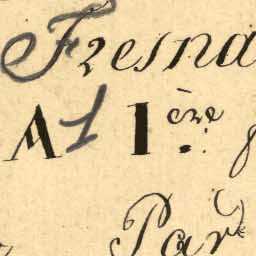 Fresna
A 1 1ère
Par